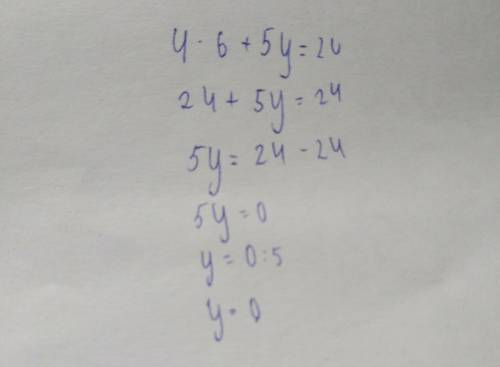 4 · 6 + 5y = 24
24 + 5y = 24
5y = 24 - 24
5y = 0
y = 0:5
y = 0